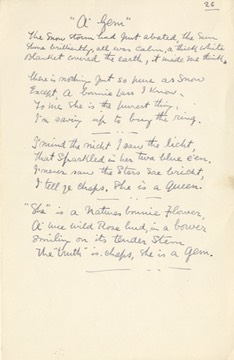 26
"A' Gem"
The Snow storm had just abated, the Sun
Shone brilliantly, all was calm, a thick white
Blanket covered the earth, it made me think,
There is nothing just so pure as Snow
Except, A Bonnie lass I know.
To me She is the purest thing.
I'm saving up to buy the ring.
I mind the nicht I saw the licht,
That Sparkled in her twa blue e'en,
I never saw the Stars sae bricht,
I tell ye chaps. She is a Queen.
"She" is a Natures bonnie Flower,
A' wee wild Rose bud, in a bower
Smilin on its tender Stem
The "truth" is. chaps, She is a Gem.